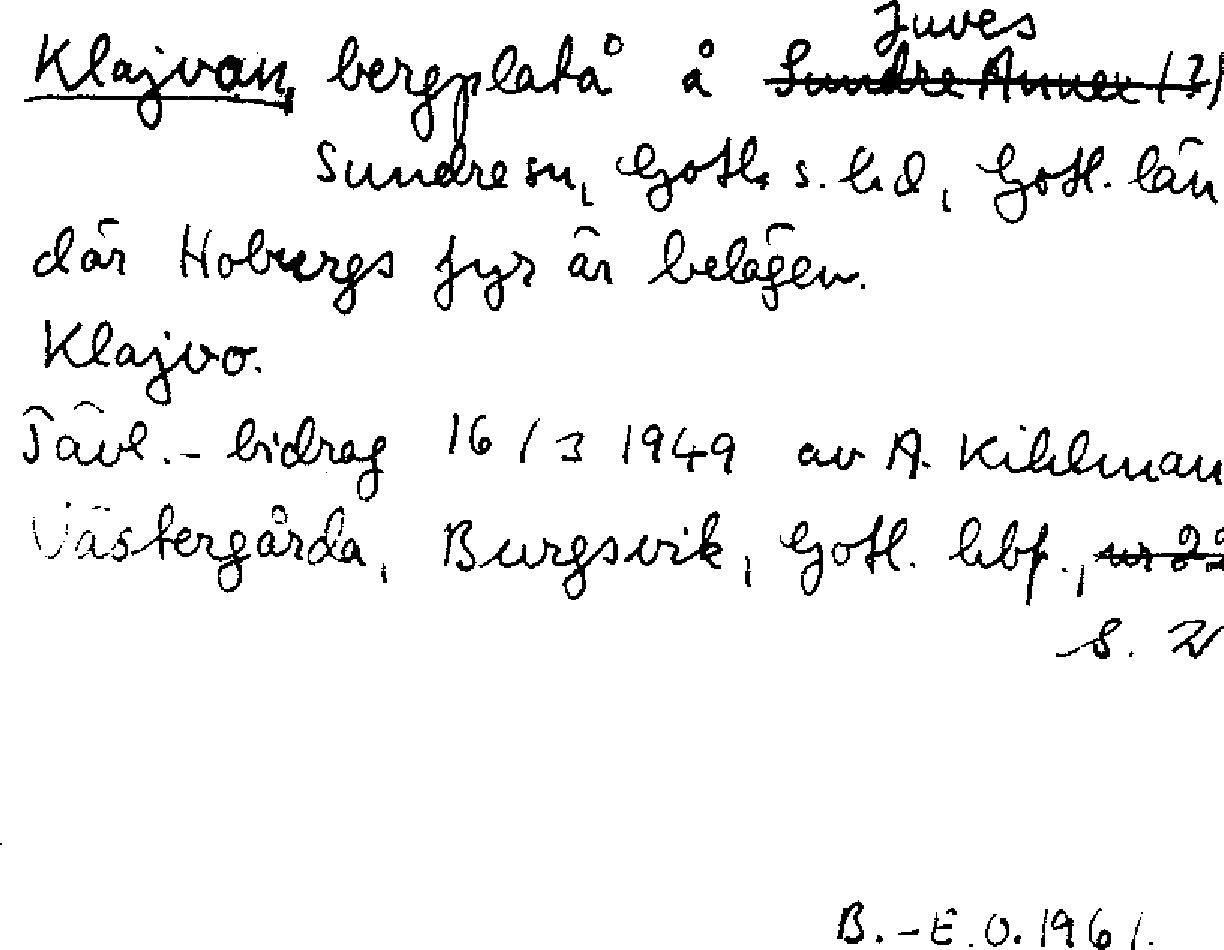 Juves
Klajvan, bergplatå å Sundre Annex (?)
Sundre sn, Gotl. s. hd, Gotl. län
där Hoburgs fyr är belägen.
Klajvo.
Tävl.-bidrag 16/3 1949 av A. Kihlman
Västergårda, Burgsvik, Gotl. hbf.,
s. 2
B.-E.O. 1961.